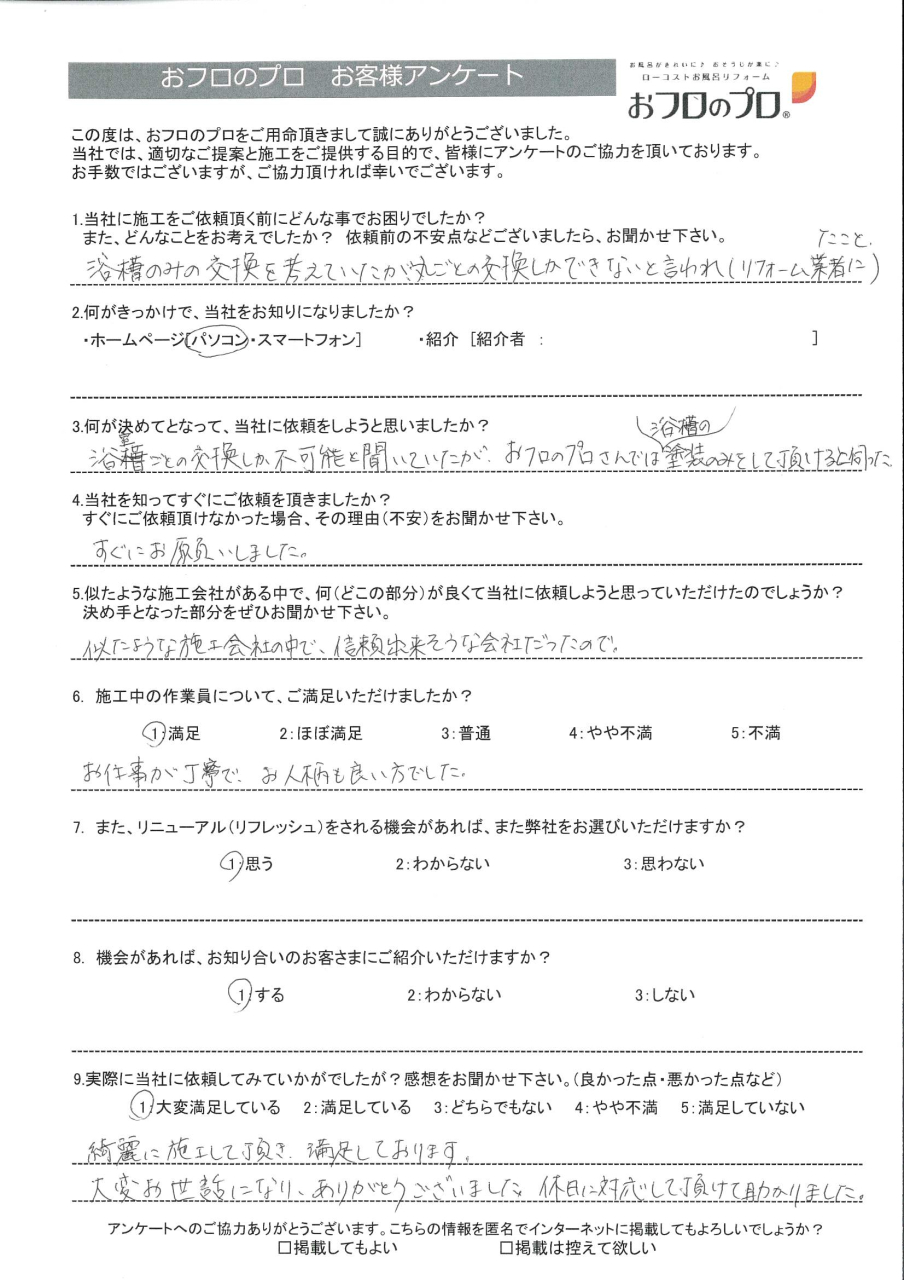 おフロのプロ　お客様アンケート
お風呂がきれいに♪ おそうじが楽に♪
ローコストお風呂リフォーム
おフロのプロ®
この度は、おフロのプロをご用命頂きまして誠にありがとうございました。
当社では、適切なご提案と施工をご提供する目的で、皆様にアンケートのご協力を頂いております。
お手数ではございますが、ご協力頂ければ幸いでございます。
1.当社に施工をご依頼頂く前にどんな事でお困りでしたか？
また、どんなことをお考えでしたか？ 依頼前の不安点などございましたら、お聞かせ下さい。
たこと.
浴槽のみの交換を考えていたが丸ごとの交換しかできないと言われ(リフォーム業者に)
2.何がきっかけで、当社をお知りになりましたか？
・ホームページ[パソコン・スマートフォン]　・紹介 [紹介者 ：　]
3.何が決めてとなって、当社に依頼をしようと思いましたか？
浴槽の
浴室ごとの交換しか不可能と聞いていたが、おフロのプロさんでは塗装のみをして頂けると伺った
4.当社を知ってすぐにご依頼を頂きましたか？
すぐにご依頼頂けなかった場合、その理由(不安)をお聞かせ下さい。
すぐにお願いしました。
5.似たような施工会社がある中で、何(どこの部分)が良くて当社に依頼しようと思っていただけたのでしょうか？
決め手となった部分をぜひお聞かせ下さい。
似たような施工会社の中で、信頼出来そうな会社だったので。
6. 施工中の作業員について、ご満足いただけましたか？
1:満足　2:ほぼ満足　3:普通　4:やや不満　5:不満
お仕事が丁寧で、お人柄も良い方でした。
7. また、リニューアル(リフレッシュ)をされる機会があれば、また弊社をお選びいただけますか？
1:思う　2:わからない　3:思わない
8. 機会があれば、お知り合いのお客さまにご紹介いただけますか？
1:する　2:わからない　3:しない
9.実際に当社に依頼してみていかがでしたか？感想をお聞かせ下さい。(良かった点・悪かった点など)
1:大変満足している　2:満足している　3:どちらでもない　4:やや不満　5:満足していない
綺麗に施工して頂き、満足しております。
大変お世話になり、ありがとうございました。休日に対応して頂けて助かりました。
アンケートへのご協力ありがとうございます。こちらの情報を匿名でインターネットに掲載してもよろしいでしょうか？
□掲載してもよい　□掲載は控えて欲しい